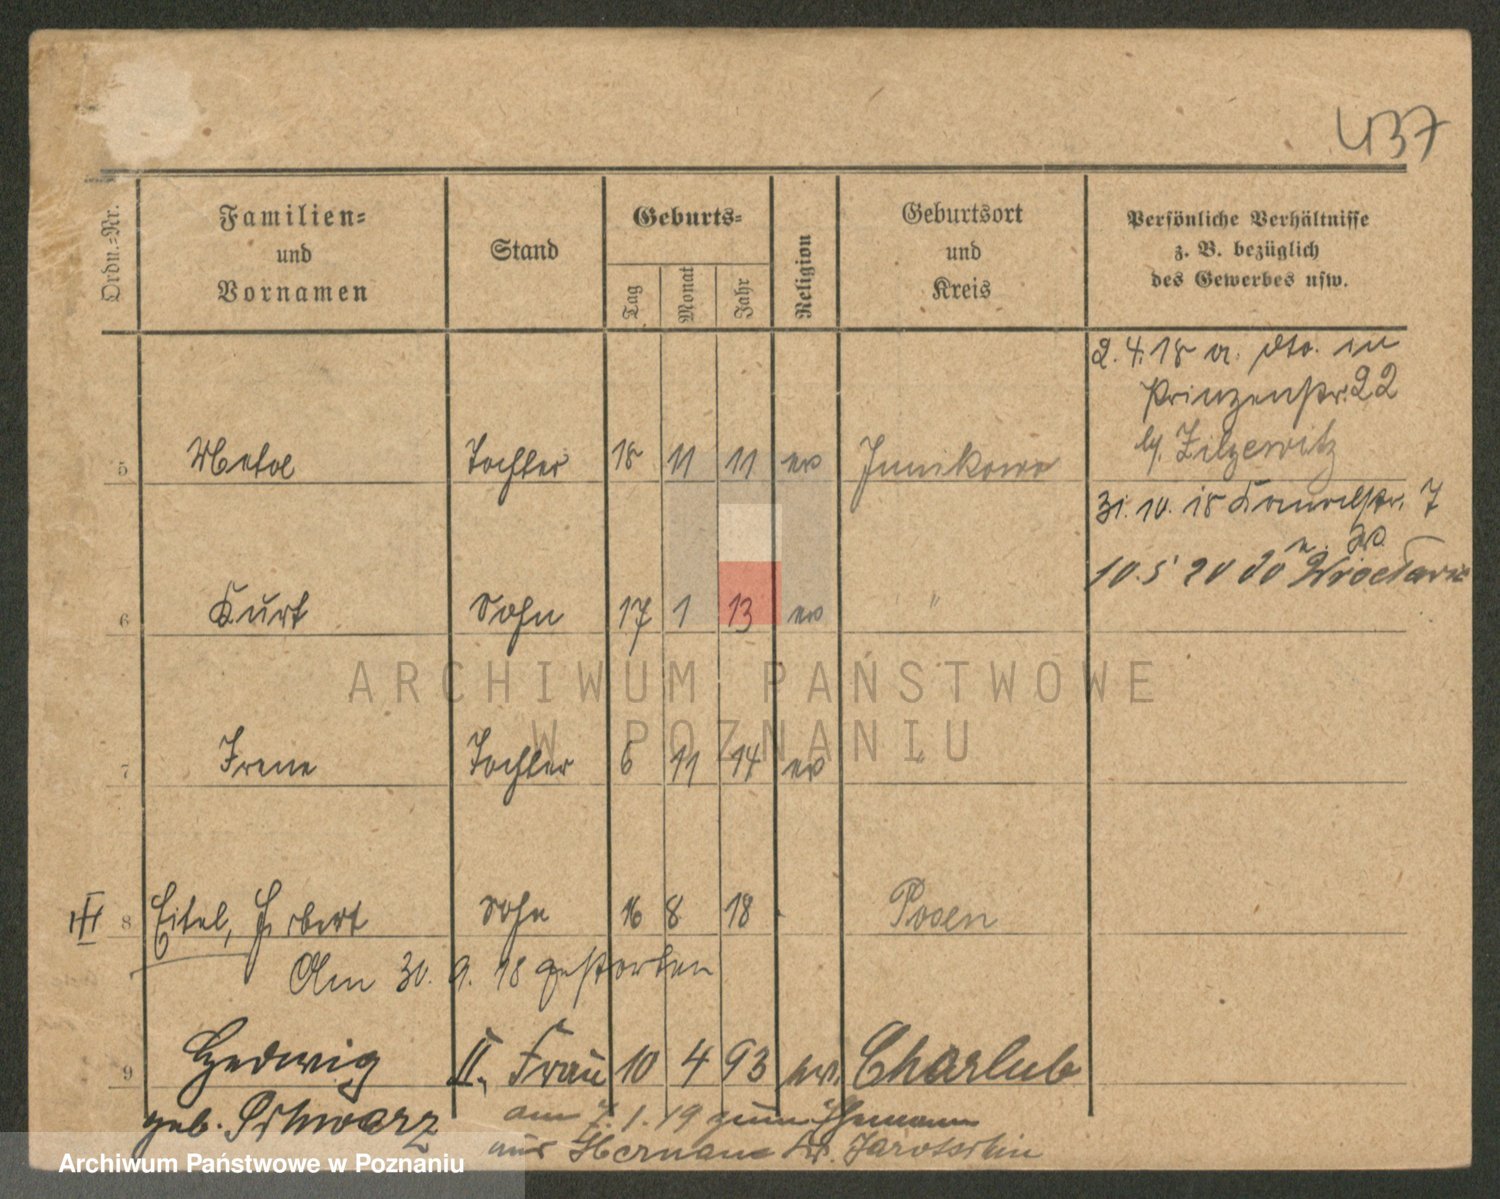 437
Ordn.-Nr.
Familien-
und
Vornamen
Stand
Geburts-
Tag
Monat
Jahr
Religion
Geburtsort
und
Kreis
Persönliche Verhältnisse
z. B. bezüglich
des Gewerbes usw.
2. 4. 18 a. dto. in
Prinzenstr. 22
b/
5 Meta Tochter 18 11 11 ev Junikowo
31. 10. 18 Kanalstr. 7
10. 5 20 do Wrocławia
6 Kurt Sohn 17 1 13 ev "
ARCHIWUM PAŃSTWOWE
W POZNANIU
7 Irene Tochter 6 11 14 ev
III 8 Eitel, Herbert Sohn 16 8 18 Posen
Am 30. 9. 18 gestorben
9 Hedwig II. Frau 10 4 93 ev. Charlub
geb. Schwarz am 7. 1. 19 zum Ehemann
aus Kr. Jarotschin
Archiwum Państwowe w Poznaniu